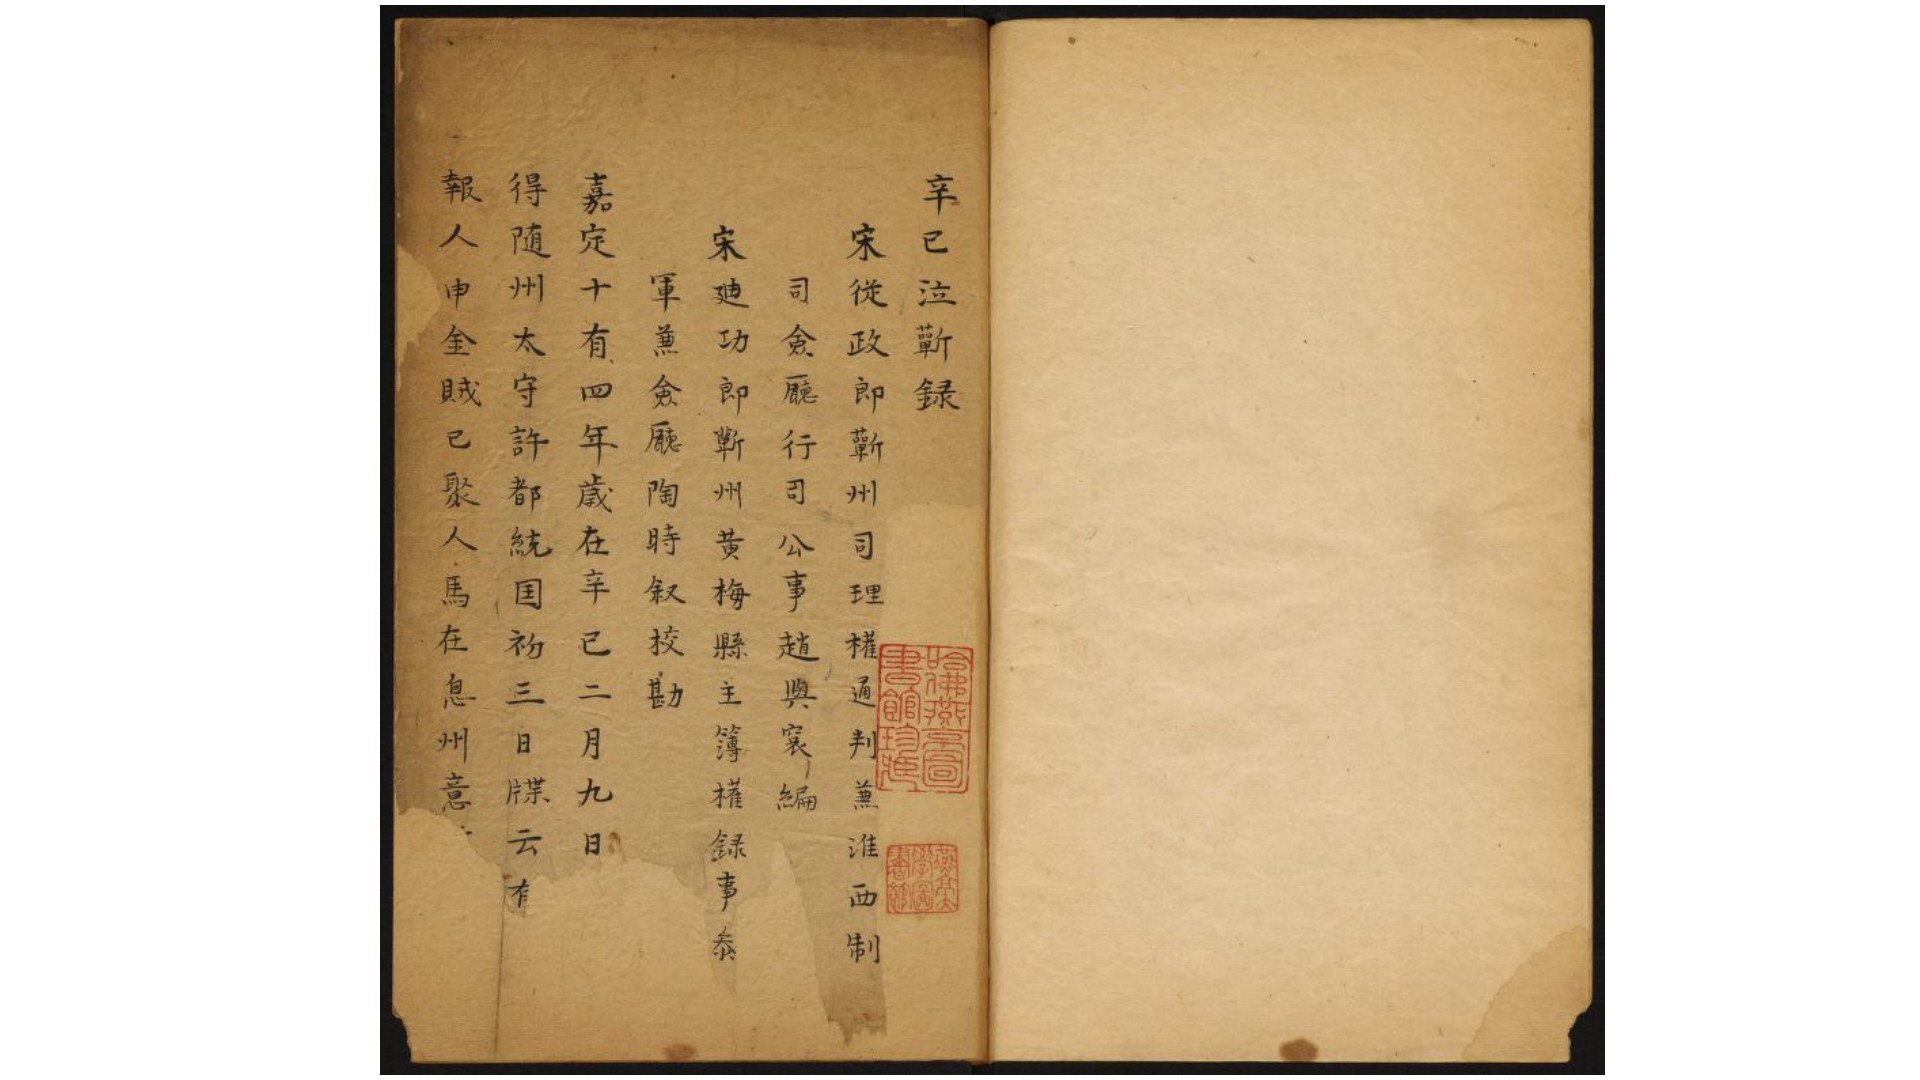 辛巳泣蘄録
宋從政郎蘄州司理權通判蕭淮西制
司僉廳行司公事趙與𥙿編
宋廸功郎蘄州黄梅縣主簿權録事叅
軍蕭僉廳陶時叙校勘
嘉定十有四年歲在辛巳二月九日
得随州太守許都統国初三日牒云有
報人申金賊已聚人馬在息州意
哈佛燕京圖書館珍藏
燕京大學圖書館